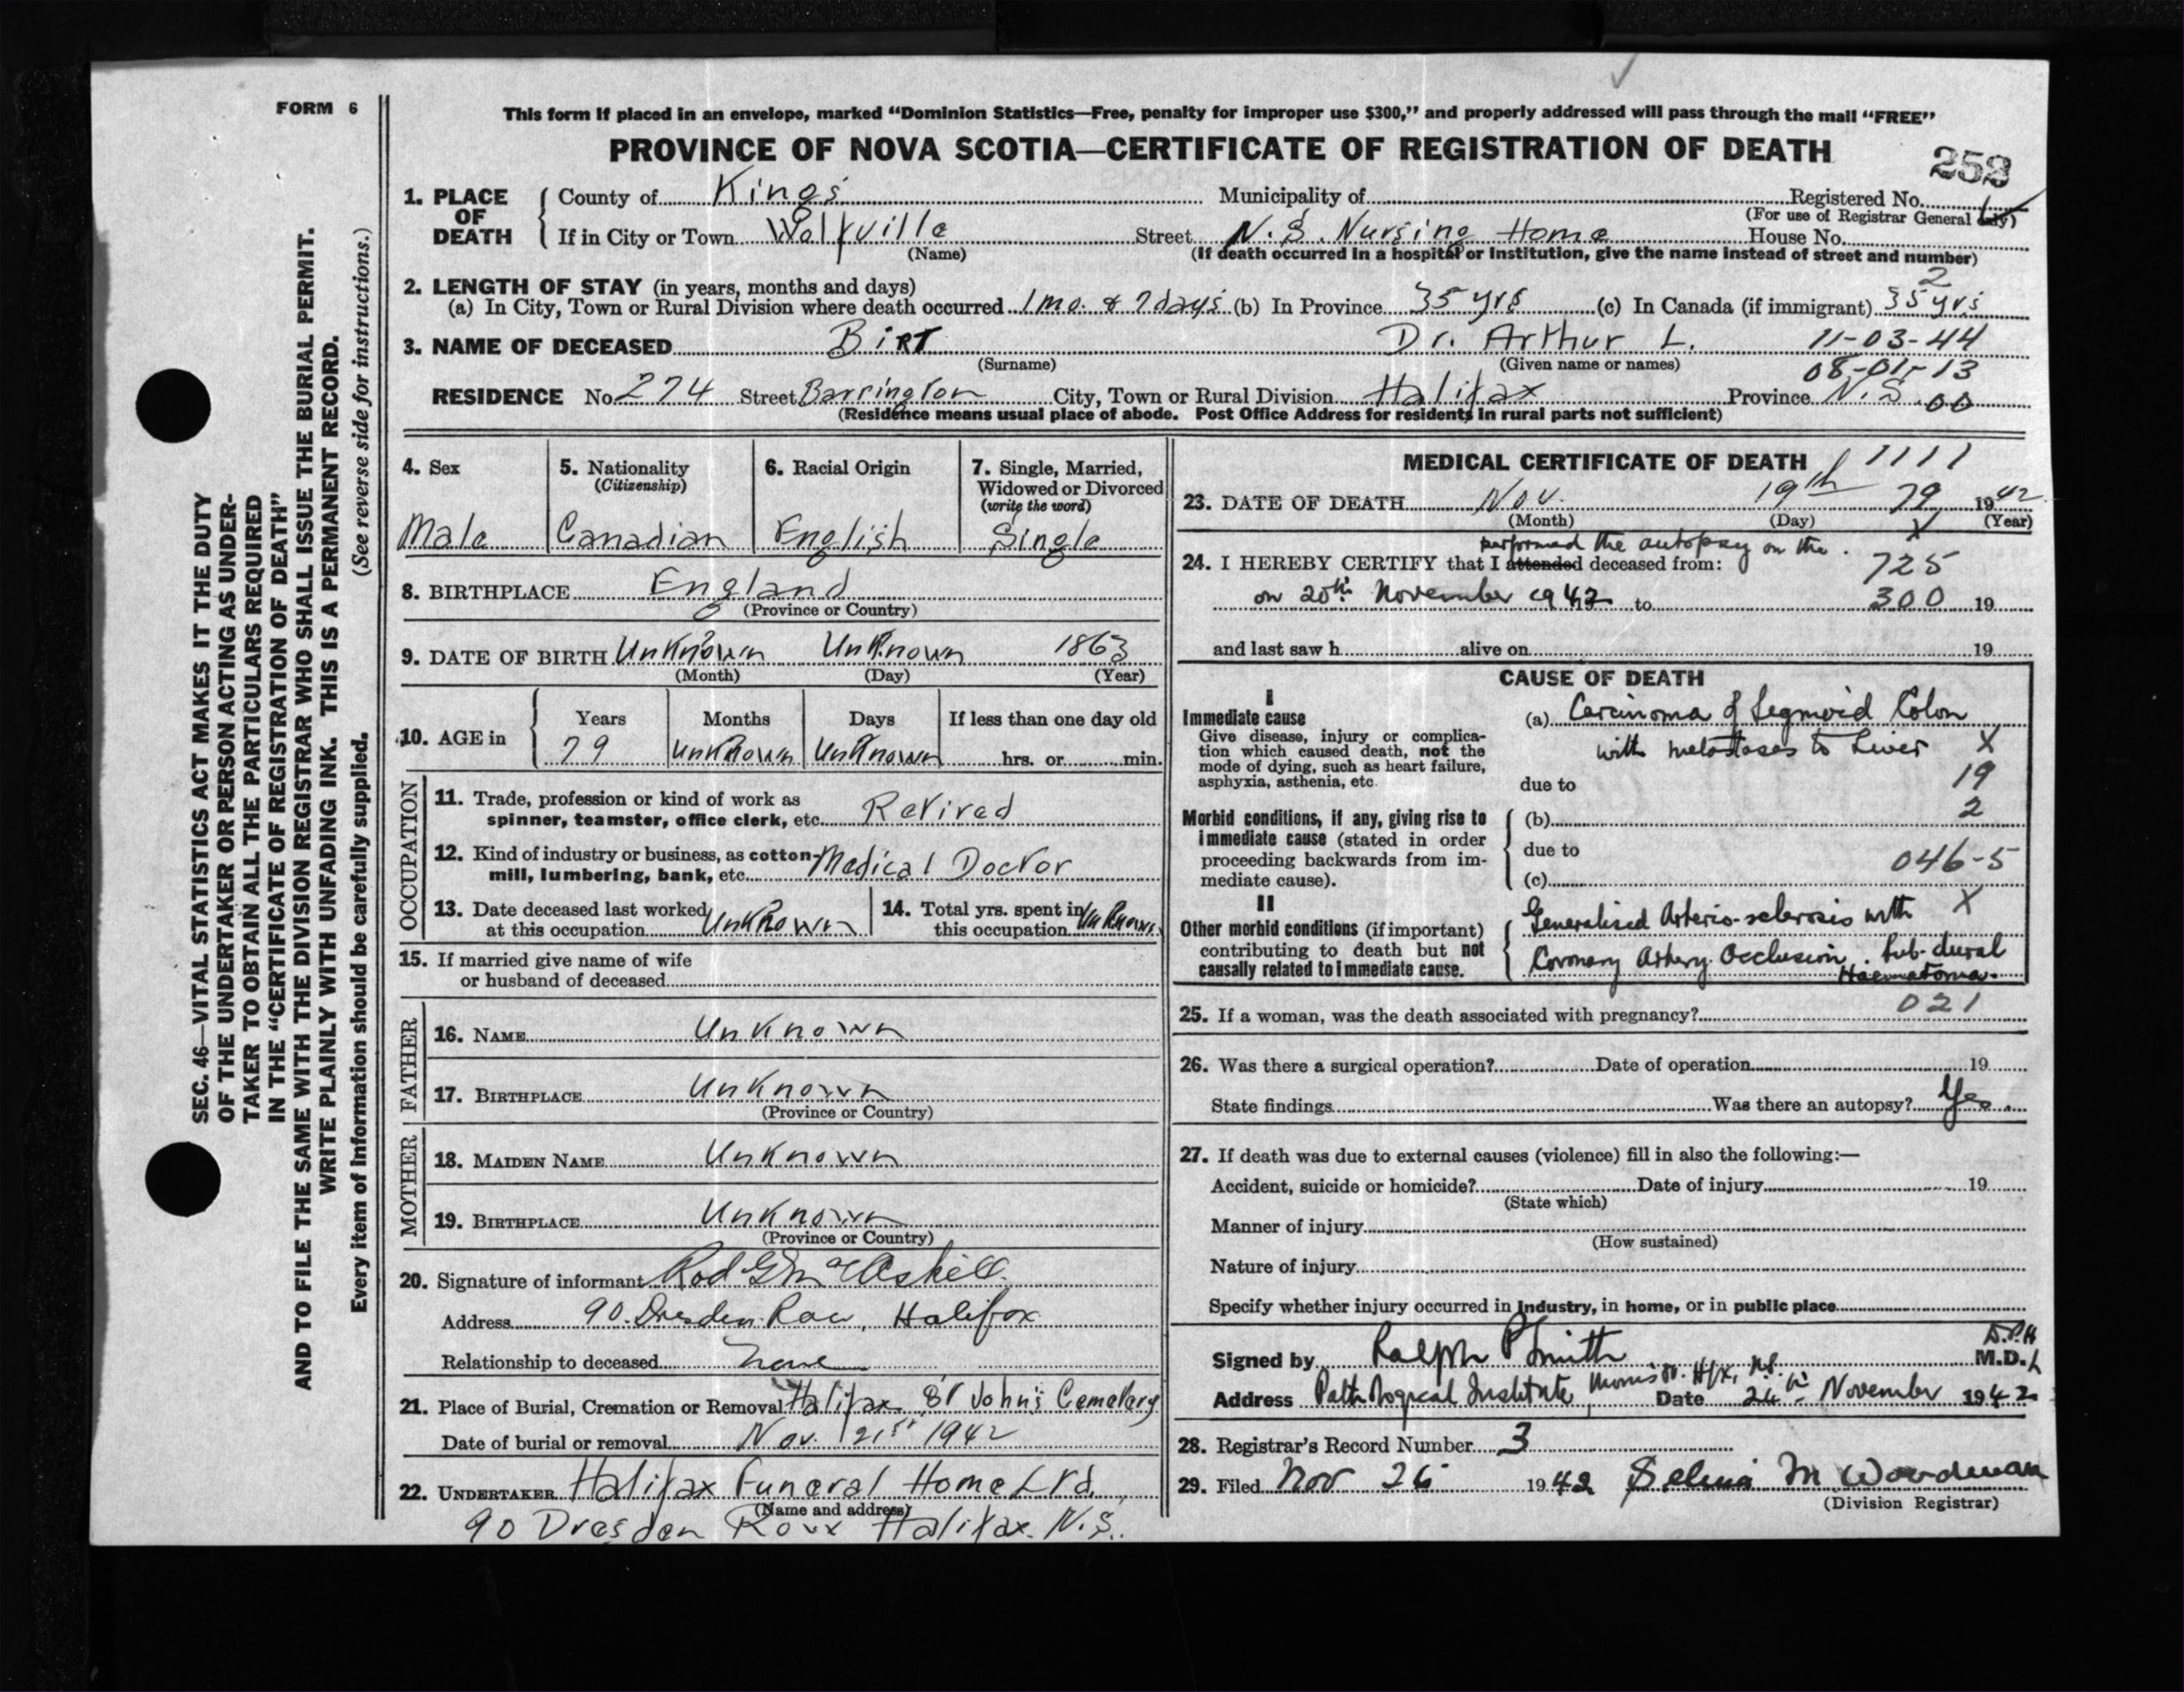 FORM 6
This form if placed in an envelope, marked “Dominion Statistics—Free, penalty for improper use $300,” and properly addressed will pass through the mail “FREE”
PROVINCE OF NOVA SCOTIA—CERTIFICATE OF REGISTRATION OF DEATH
252
SEC. 46—VITAL STATISTICS ACT MAKES IT THE DUTY
OF THE UNDERTAKER OR PERSON ACTING AS UNDER-
TAKER TO OBTAIN ALL THE PARTICULARS REQUIRED
IN THE “CERTIFICATE OF REGISTRATION OF DEATH”
AND TO FILE THE SAME WITH THE DIVISION REGISTRAR WHO SHALL ISSUE THE BURIAL PERMIT.
WRITE PLAINLY WITH UNFADING INK. THIS IS A PERMANENT RECORD.
Every item of information should be carefully supplied. (See reverse side for instructions.)
1. PLACE OF DEATH
County of Kings Municipality of Registered No.
(For use of Registrar General only)
If in City or Town Wolfville Street N.S. Nursing Home House No.
(Name) (If death occurred in a hospital or institution, give the name instead of street and number)
2. LENGTH OF STAY (in years, months and days) 2
(a) In City, Town or Rural Division where death occurred 1 mo. & 7 days (b) In Province 35 yrs (c) In Canada (if immigrant) 35 yrs
3. NAME OF DECEASED Birt Dr. Arthur L. 11-03-44
(Surname) (Given name or names) 08-01-13
RESIDENCE No. 274 Street Barrington City, Town or Rural Division Halifax Province N.S. 00
(Residence means usual place of abode. Post Office Address for residents in rural parts not sufficient)
4. Sex
Male
5. Nationality
(Citizenship)
Canadian
6. Racial Origin
English
7. Single, Married,
Widowed or Divorced
(write the word)
Single
8. BIRTHPLACE England
(Province or Country)
9. DATE OF BIRTH Unknown Unknown 1863
(Month) (Day) (Year)
10. AGE in
Years Months Days If less than one day old
79 Unknown Unknown hrs. or min.
OCCUPATION
11. Trade, profession or kind of work as
spinner, teamster, office clerk, etc. Retired
12. Kind of industry or business, as cotton-
mill, lumbering, bank, etc. Medical Doctor
13. Date deceased last worked
at this occupation Unknown
14. Total yrs. spent in
this occupation Unknown
15. If married give name of wife
or husband of deceased
FATHER
16. NAME Unknown
17. BIRTHPLACE Unknown
(Province or Country)
MOTHER
18. MAIDEN NAME Unknown
19. BIRTHPLACE Unknown
(Province or Country)
20. Signature of informant Rod G McAskill
Address 90 Dresden Row, Halifax
Relationship to deceased none
21. Place of Burial, Cremation or Removal Halifax St John's Cemetery
Date of burial or removal Nov. 21st 1942
22. UNDERTAKER Halifax Funeral Home Ltd.
(Name and address)
90 Dresden Row Halifax N.S.
MEDICAL CERTIFICATE OF DEATH 1111
23. DATE OF DEATH Nov. 19th 79 1942
(Month) (Day) (Year)
X
performed the autopsy on the
24. I HEREBY CERTIFY that I attended deceased from: 725
on 20th November 1942 to 300 19
and last saw h alive on 19
CAUSE OF DEATH
I
Immediate cause
Give disease, injury or complica-
tion which caused death, not the
mode of dying, such as heart failure,
asphyxia, asthenia, etc.
(a) Carcinoma of Segmoid Colon
with metastases to Liver X
due to 19
2
Morbid conditions, if any, giving rise to
immediate cause (stated in order
proceeding backwards from im-
mediate cause).
(b)
due to
046-5
(c)
II
Other morbid conditions (if important)
contributing to death but not
causally related to immediate cause.
Generalised Arterio-sclerosis with X
Coronary Artery Occlusion. Sub-dural
Haematoma.
25. If a woman, was the death associated with pregnancy? 021
26. Was there a surgical operation? Date of operation 19
State findings Was there an autopsy? Yes.
27. If death was due to external causes (violence) fill in also the following:—
Accident, suicide or homicide? Date of injury 19
(State which)
Manner of injury
(How sustained)
Nature of injury
Specify whether injury occurred in industry, in home, or in public place
Signed by Ralph P Smith D.P.H M.D.
Address Pathological Institute, Morris St. Hfx, N.S. Date 24th November 1942
28. Registrar's Record Number 3
29. Filed Nov 26 1942 Selina M Woodman
(Division Registrar)